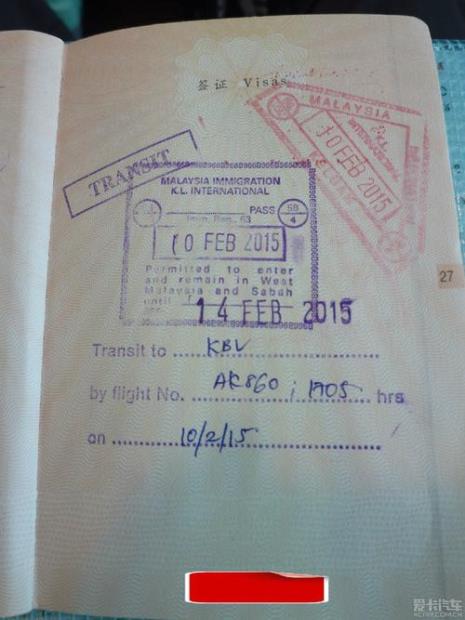 签证 Visas
MALAYSIA
K.L.
INTERNATIONAL
10 FEB 2015
TRANSIT
MALAYSIA IMMIGRATION
K.L. INTERNATIONAL
PASS 58
4
Imm. Reg. 63
10 FEB 2015
Permitted to enter
and remain in West
Malaysia and Sabah
until
14 FEB 2015
27
Transit to KBV
by flight No. AK860 ; 1705 hrs
on 10/2/15
爱卡汽车
XCAR.COM.CN